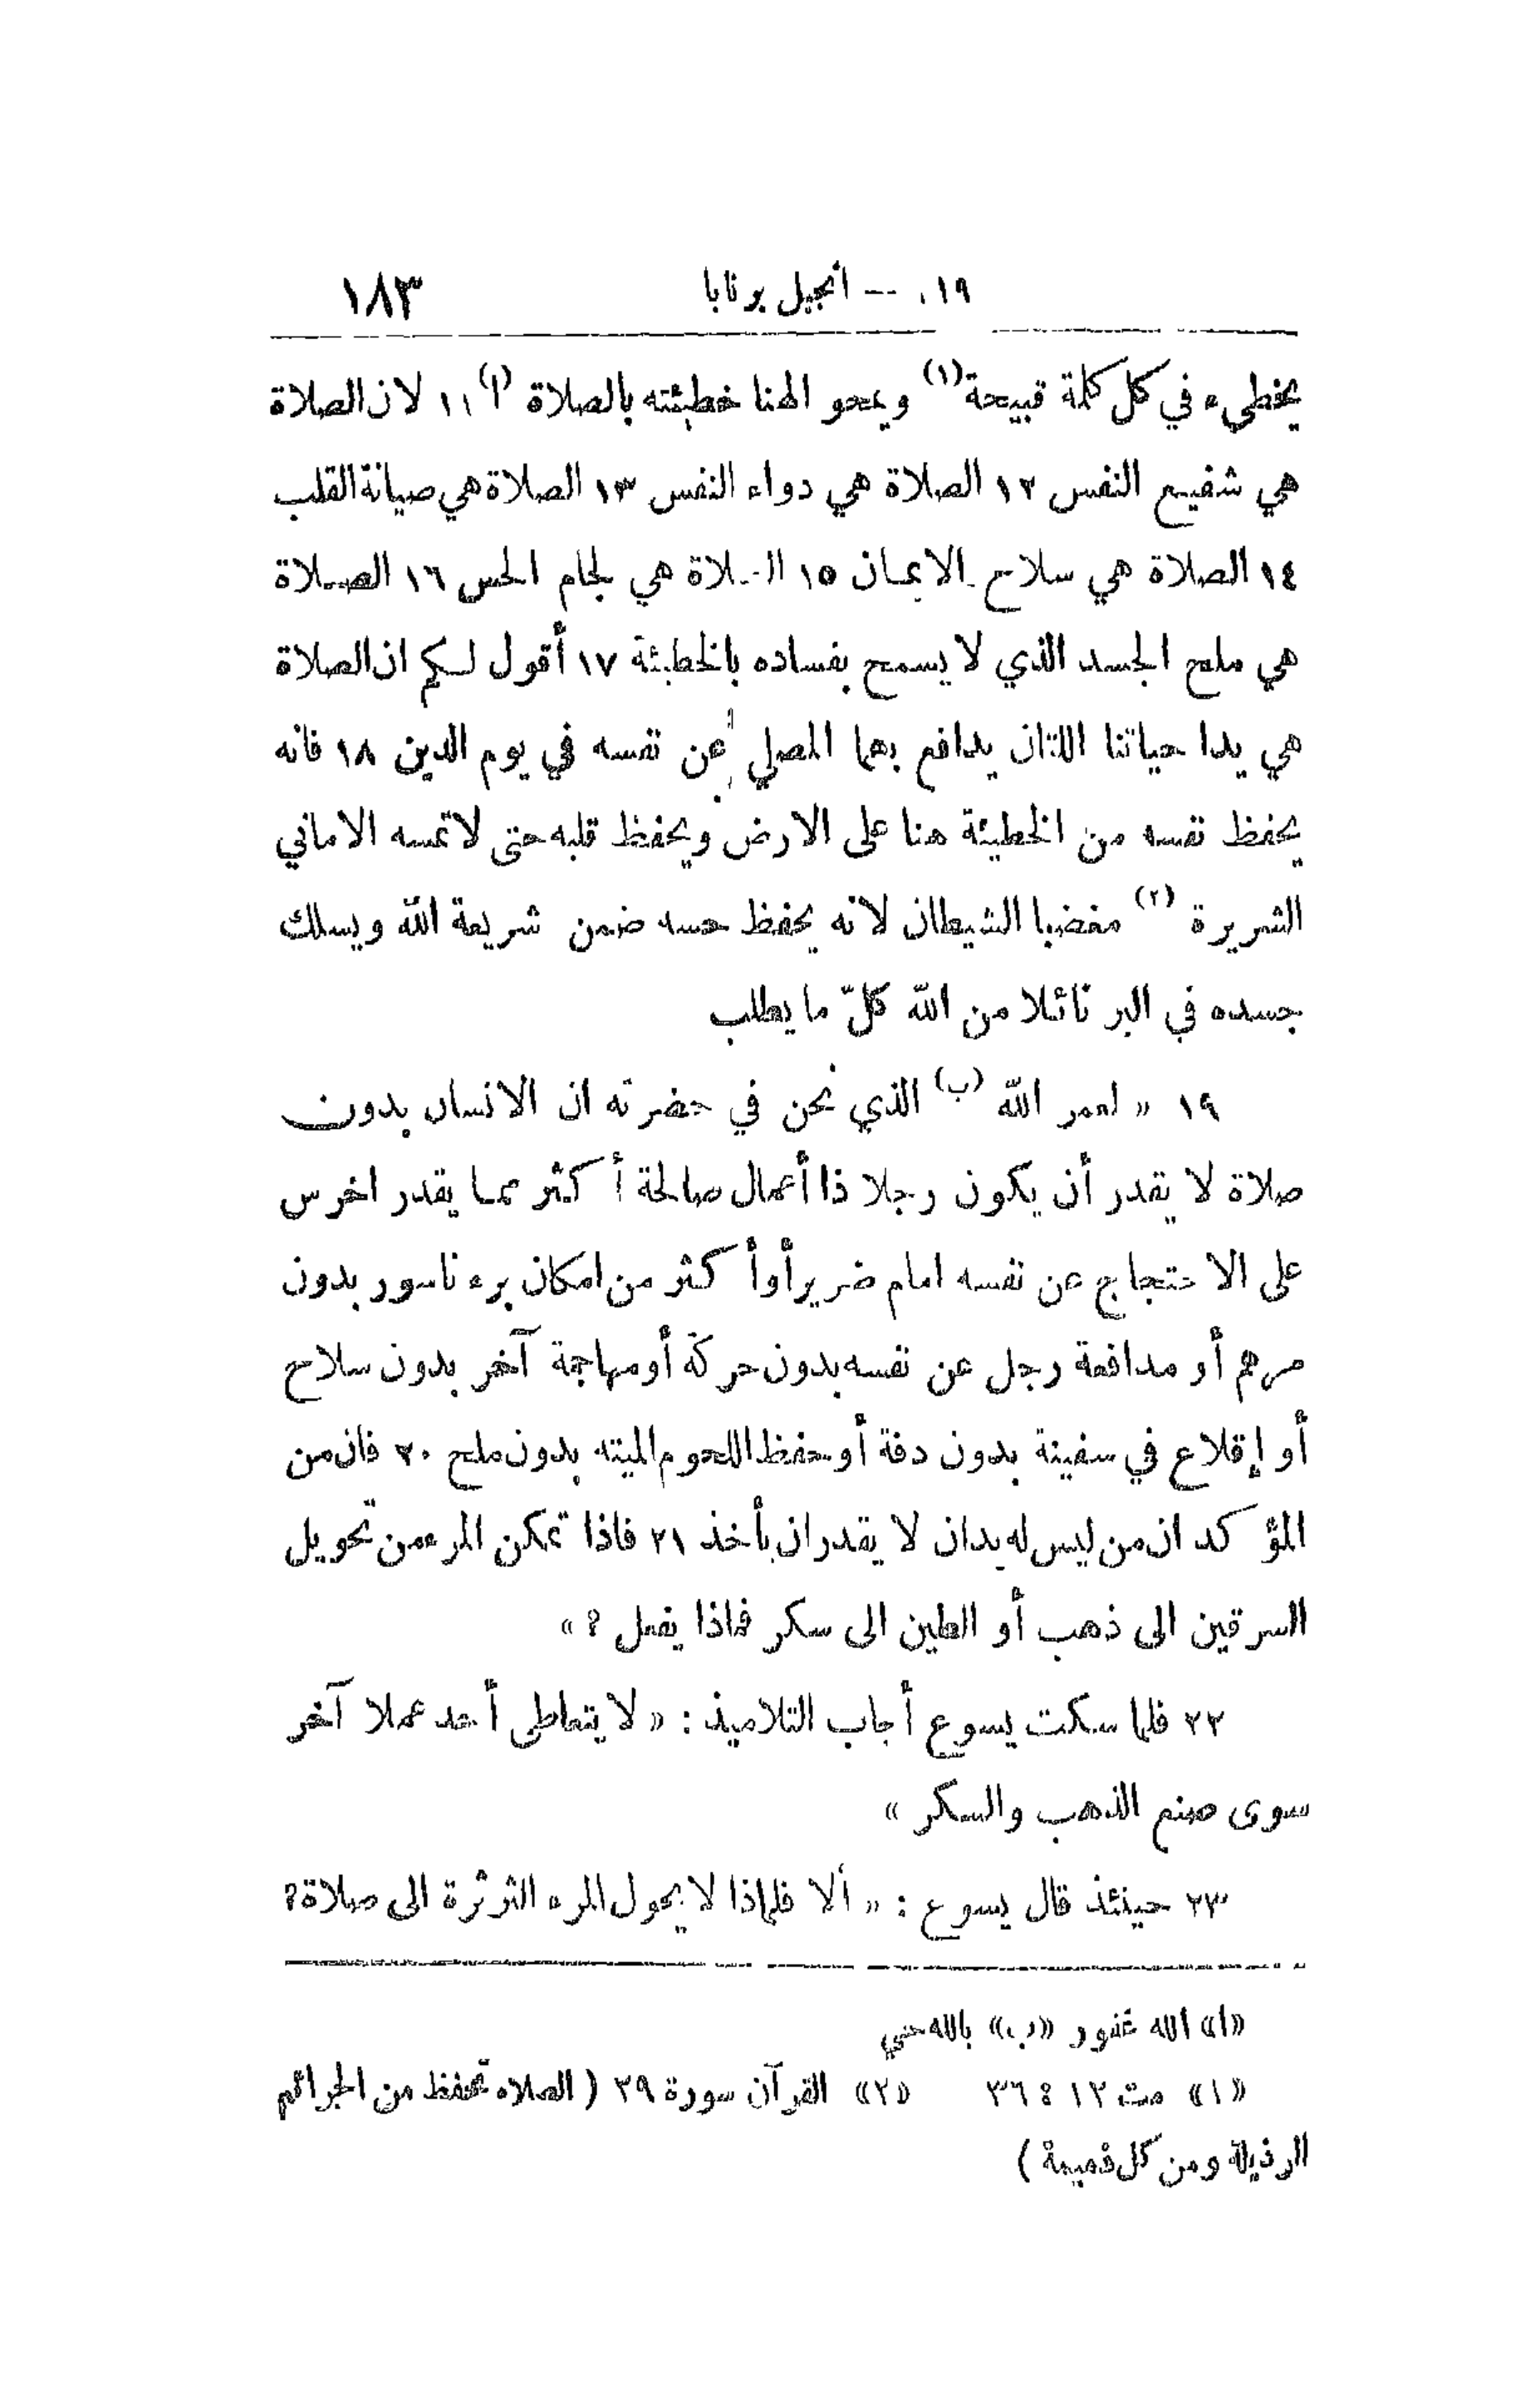 ١١٩ — انجيل برنابا ١٨٣
يخطىء في كل كلمة قبيحة (١) ويمحو الهنا خطيئته بالصلاة (ا) ١١ لان الصلاة
هي شفيع النفس ١٢ الصلاة هي دواء النفس ١٣ الصلاة هي صيانة القلب
١٤ الصلاة هي سلاح الايمان ١٥ الصلاة هي لجام الحس ١٦ الصلاة
هي ملح الجسد الذي لا يسمح بفساده بالخطيئة ١٧ أقول لكم ان الصلاة
هي يدا حياتنا اللتان يدافع بهما المصلي عن نفسه في يوم الدين ١٨ فانه
يحفظ نفسه من الخطيئة هنا على الارض ويحفظ قلبه حتى لا تمسه الاماني
الشريرة (٢) مغضبا الشيطان لانه يحفظ حسه ضمن شريعة الله ويسلك
جسده في البر نائلا من الله كلّ ما يطلب
١٩ « لعمر الله (ب) الذي نحن في حضرته ان الانسان بدون
صلاة لا يقدر أن يكون رجلا ذا أعمال صالحة أكثر مما يقدر اخرس
على الاحتجاج عن نفسه امام ضرير أو أكثر من امكان برء ناسور بدون
مرهم أو مدافعة رجل عن نفسه بدون حركة أو مهاجمة آخر بدون سلاح
أو إقلاع في سفينة بدون دفة أو حفظ اللحوم الميته بدون ملح ٢٠ فان من
المؤكد ان من ليس له يدان لا يقدر ان يأخذ ٢١ فاذا تمكن المرء من تحويل
السرقين الى ذهب أو الطين الى سكر فماذا يفعل ؟ »
٢٢ فلما سكت يسوع أجاب التلاميذ : « لا يتعاطى أحد عملا آخر
سوى صنع الذهب والسكر »
٢٣ حينئذ قال يسوع : « ألا فلماذا لا يحول المرء الثرثرة الى صلاة ؟
«ا» الله غفور «ب» بالله حي
«١» مت ١٢ : ٣٦ «٢» القرآن سورة ٢٩ ( الصلاه تحفظ من الجرائم
الرذيلة ومن كل ذميمة )